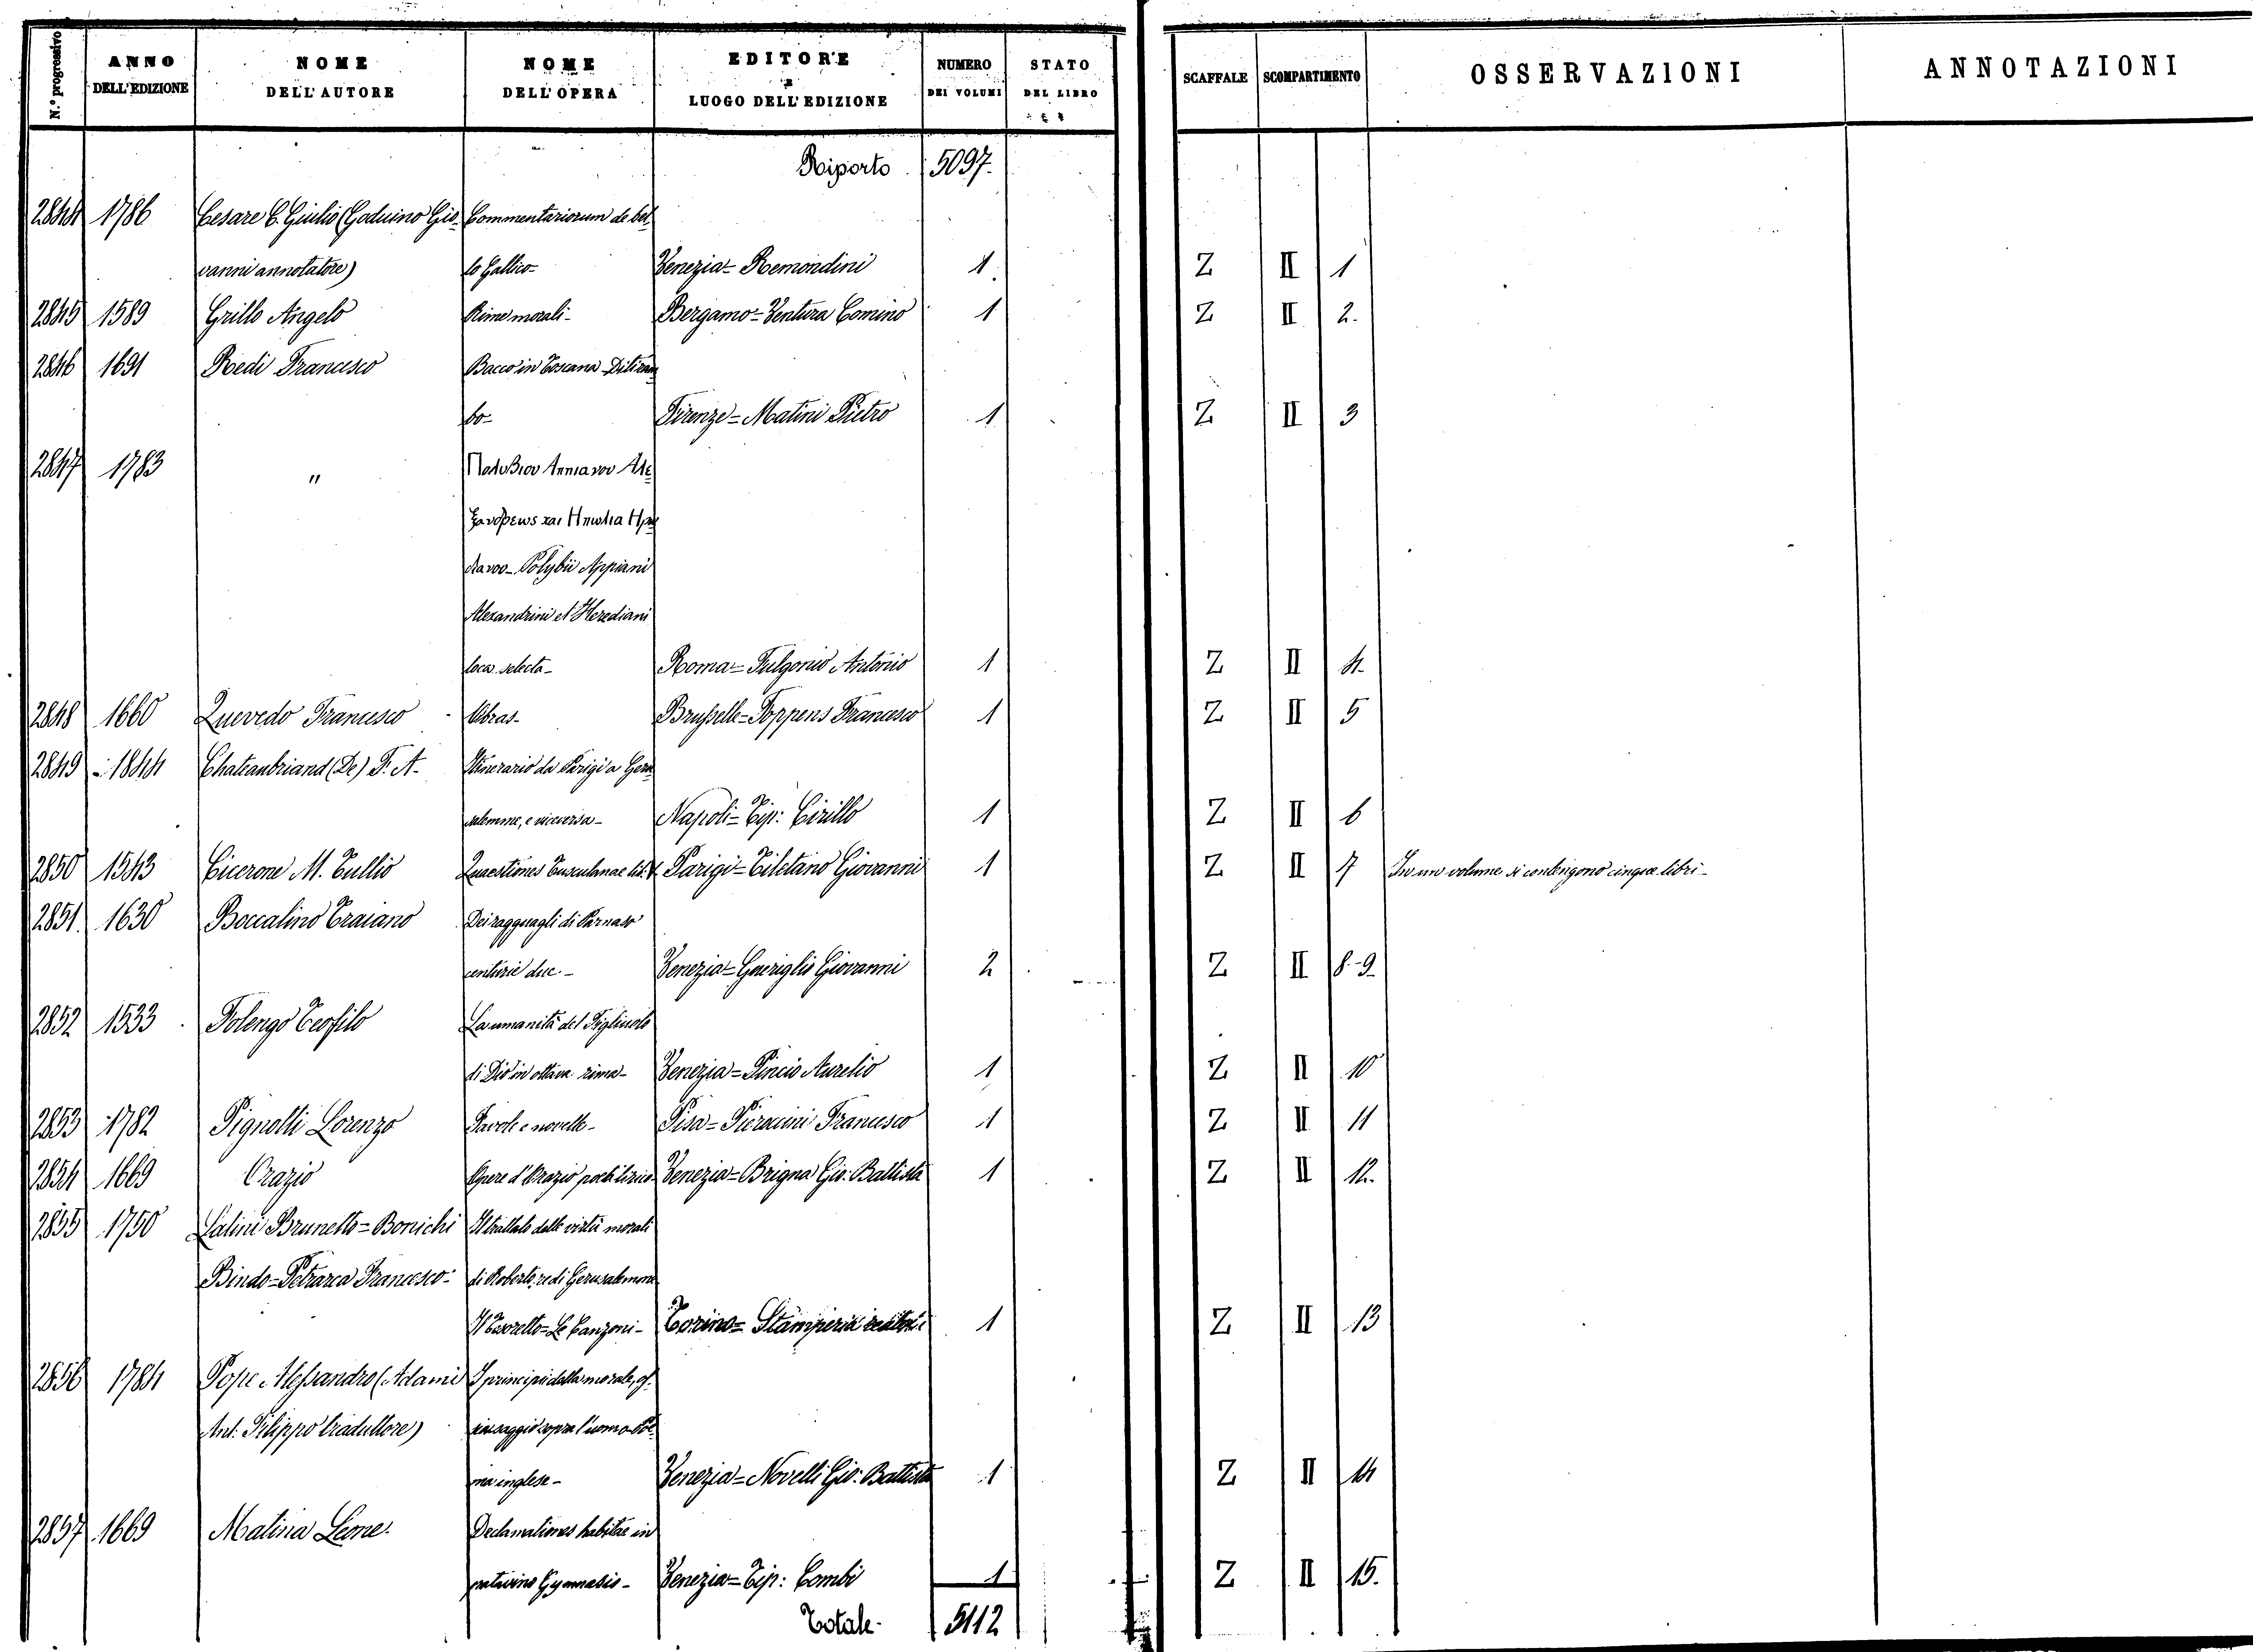 N.° progressivo | ANNO DELL'EDIZIONE | NOME DELL'AUTORE | NOME DELL'OPERA | EDITORE E LUOGO DELL'EDIZIONE | NUMERO DEI VOLUMI | STATO DEL LIBRO | SCAFFALE | SCOMPARTIMENTO | OSSERVAZIONI | ANNOTAZIONI
Riporto 5097.
2844 1786 Cesare C. Giulio (Goduino Gio- Commentariorum de bel-
vanni annotatore) lo Gallico- Venezia= Remondini 1. Z II 1
2845 1589 Grillo Angelo Rime morali- Bergamo= Ventura Comino 1 Z II 2.
2846 1691 Redi Francesco Bacco in Toscana Ditiram
bo- Firenze= Matini Pietro 1 Z II 3
2847 1783 " Πολυβιου Αππιανου Αλε
ξανδρεως και Ηπωλια Ηρω
διανου- Polybii Appiani
Alexandrini et Herediani
loca selecta- Roma= Fulgonio Antonio 1 Z II 4.
2848 1660 Quevedo Francesco Obras- Brusselle= Foppens Francesco 1 Z II 5
2849 1844 Chateaubriand (De) F. A. Itinerario da Parigi a Geru
salemme, e viceversa- Napoli= Tip: Cirillo 1 Z II 6
2850 1543 Cicerone M. Tullio Quaestiones Tusculanae lib. V Parigi= Tiletano Giovanni 1 Z II 7 In un volume si contengono cinque libri-
2851. 1630 Boccalino Traiano Dei ragguagli di Parnaso
centurie due.- Venezia= Gueriglio Giovanni 2 Z II 8-9.
2852 1533 Folengo Teofilo La umanità del Figliuolo
di Dio in ottava rima- Venezia= Pincio Aurelio 1 Z II 10
2853 1782 Pignotti Lorenzo Favole e novelle- Pisa= Pieraccini Francesco 1 Z II 11
2854 1669 Orazio Opere d'Orazio poeta lirico- Venezia= Brigna Gio: Battista 1 Z II 12.
2855 1750 Latini Brunetto= Bonichi Il trattato delle virtù morali
Bindo= Petrarca Francesco- di Roberto, re di Gerusalemme
Il Tesoretto= Le Canzoni- Torino= Stamperia reale 1 Z II 13
2856 1784 Pope Alessandro (Adami I principi della morale, os-
Ant: Filippo traduttore) sia saggio sopra l'uomo Poe-
ma inglese- Venezia= Novelli Gio: Battista 1 Z II 14
2857 1669 Matina Leone. Declamationes habitae in
patavino Gymnasio- Venezia= Tip: Combi 1 Z II 15.
Totale- 5112